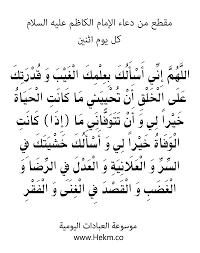 مقطع من دعاء الإمام الكاظم عليه السلام
كل يوم اثنين
اللَّهُمَّ إِنِّي أَسْأَلُكَ بِعِلْمِكَ الْغَيْبَ وَ قُدْرَتِكَ
عَلَى الْخَلْقِ أَنْ تُحْيِيَنِي مَا كَانَتِ الْحَيَاةُ
خَيْراً لِي وَ أَنْ تَتَوَفَّانِي مَا (إِذَا) كَانَتِ
الْوَفَاةُ خَيْراً لِي وَ أَسْأَلُكَ خَشْيَتَكَ فِي
السِّرِّ وَ الْعَلَانِيَةِ وَ الْعَدْلَ فِي الرِّضَا وَ
الْغَضَبِ وَ الْقَصْدَ فِي الْغِنَى وَ الْفَقْرِ
موسوعة العبادات اليومية
www.Hekm.co